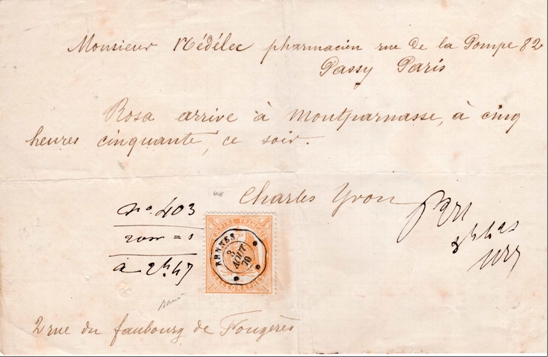 Monsieur Nédélec pharmacien rue de la Pompe 82
Passy Paris
Rosa arrive à Montparnasse, à cinq
heures cinquante, ce soir.
Charles Yvon
no. 403
à 2h47
RENNES
AOUT
70
2 rue du faubourg de Fougères